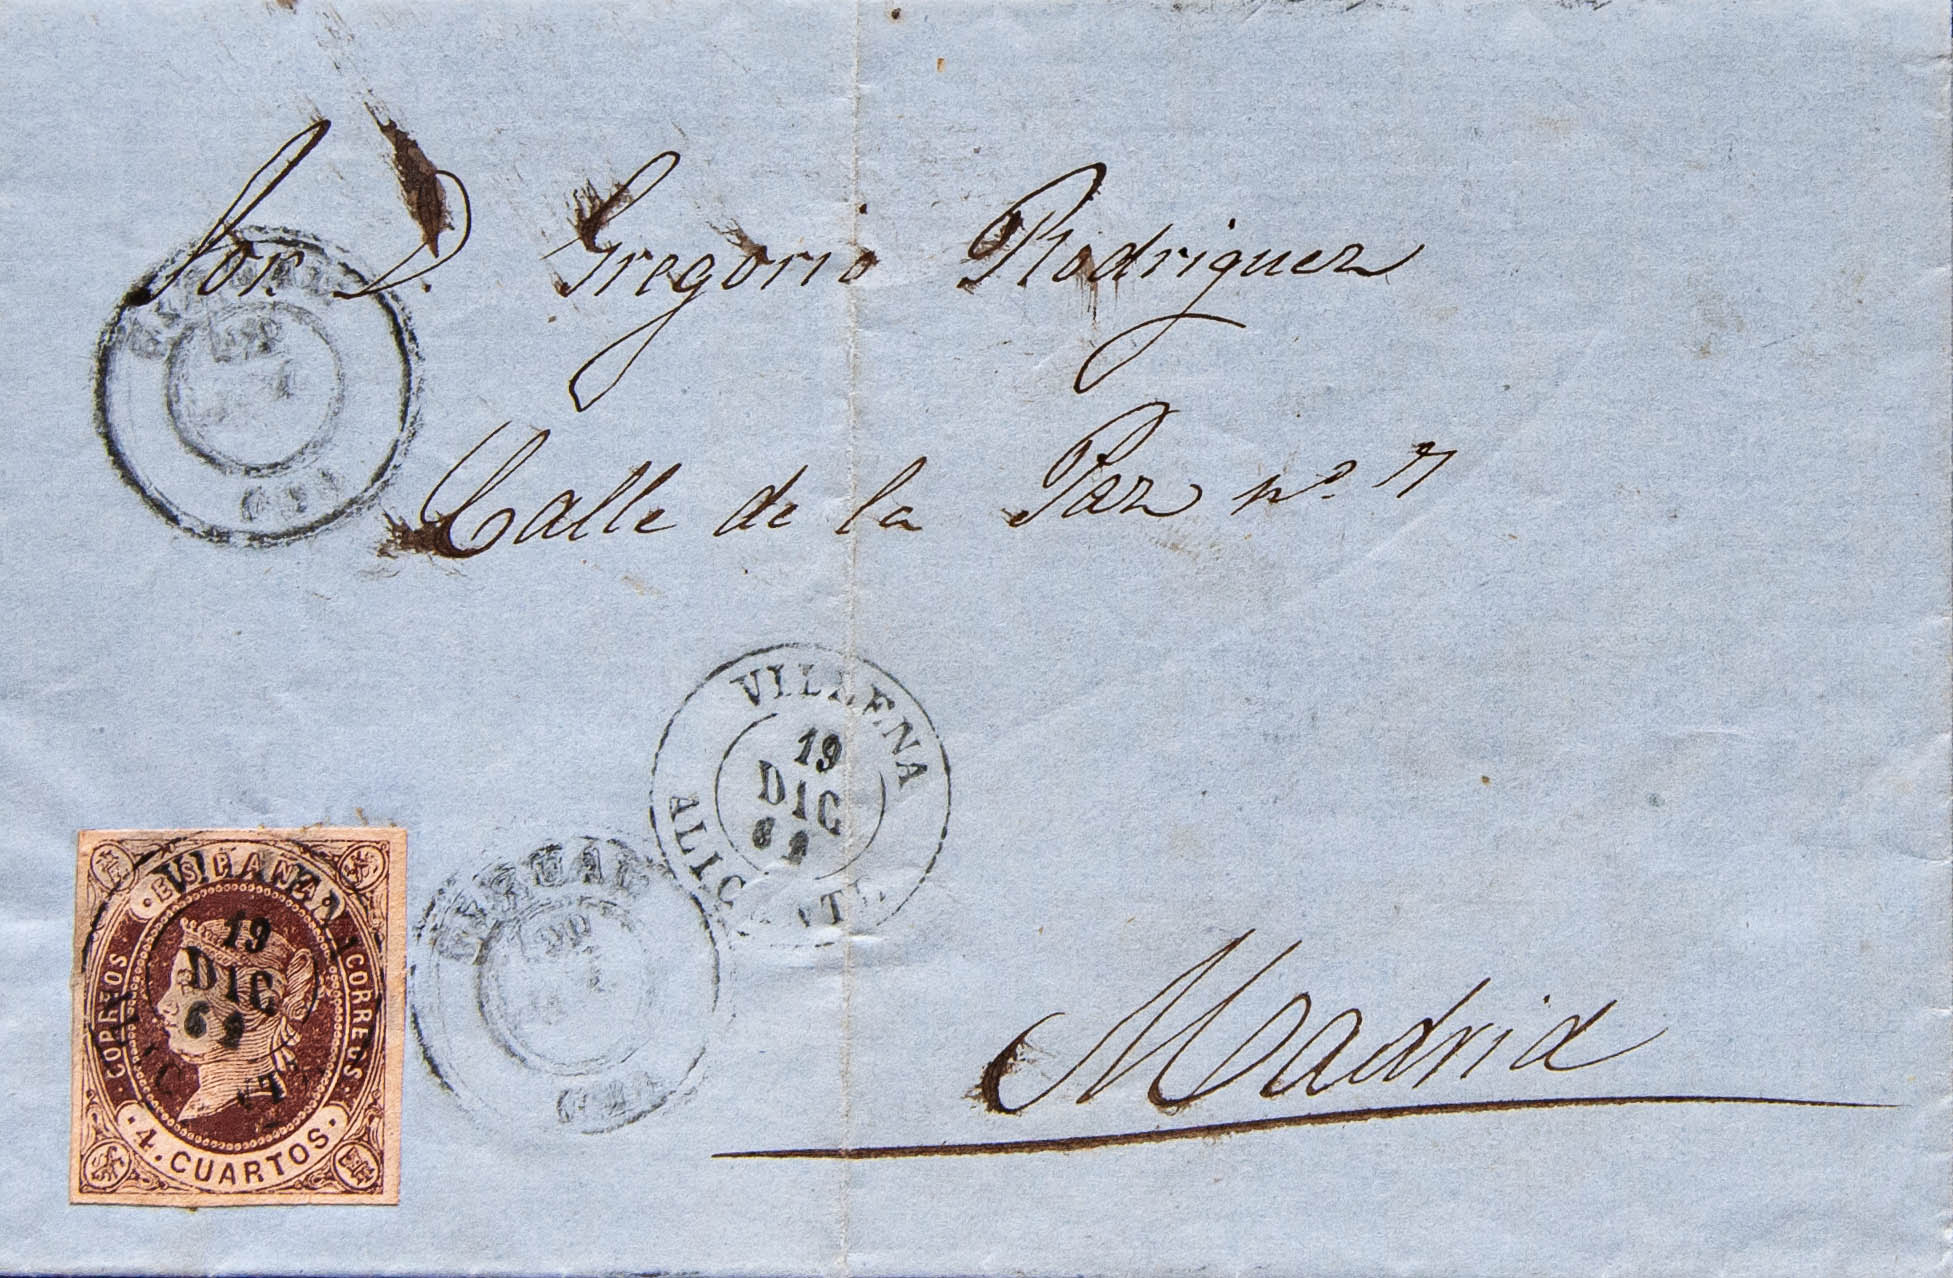 Sor. D. Gregorio Rodriguez
Calle de la Paz nº 7
Madrid
VILLENA
19
DIC
62
ALICANTE
ESPAÑA
CORREOS
CORREOS
4. CUARTOS.
19
DIC
62